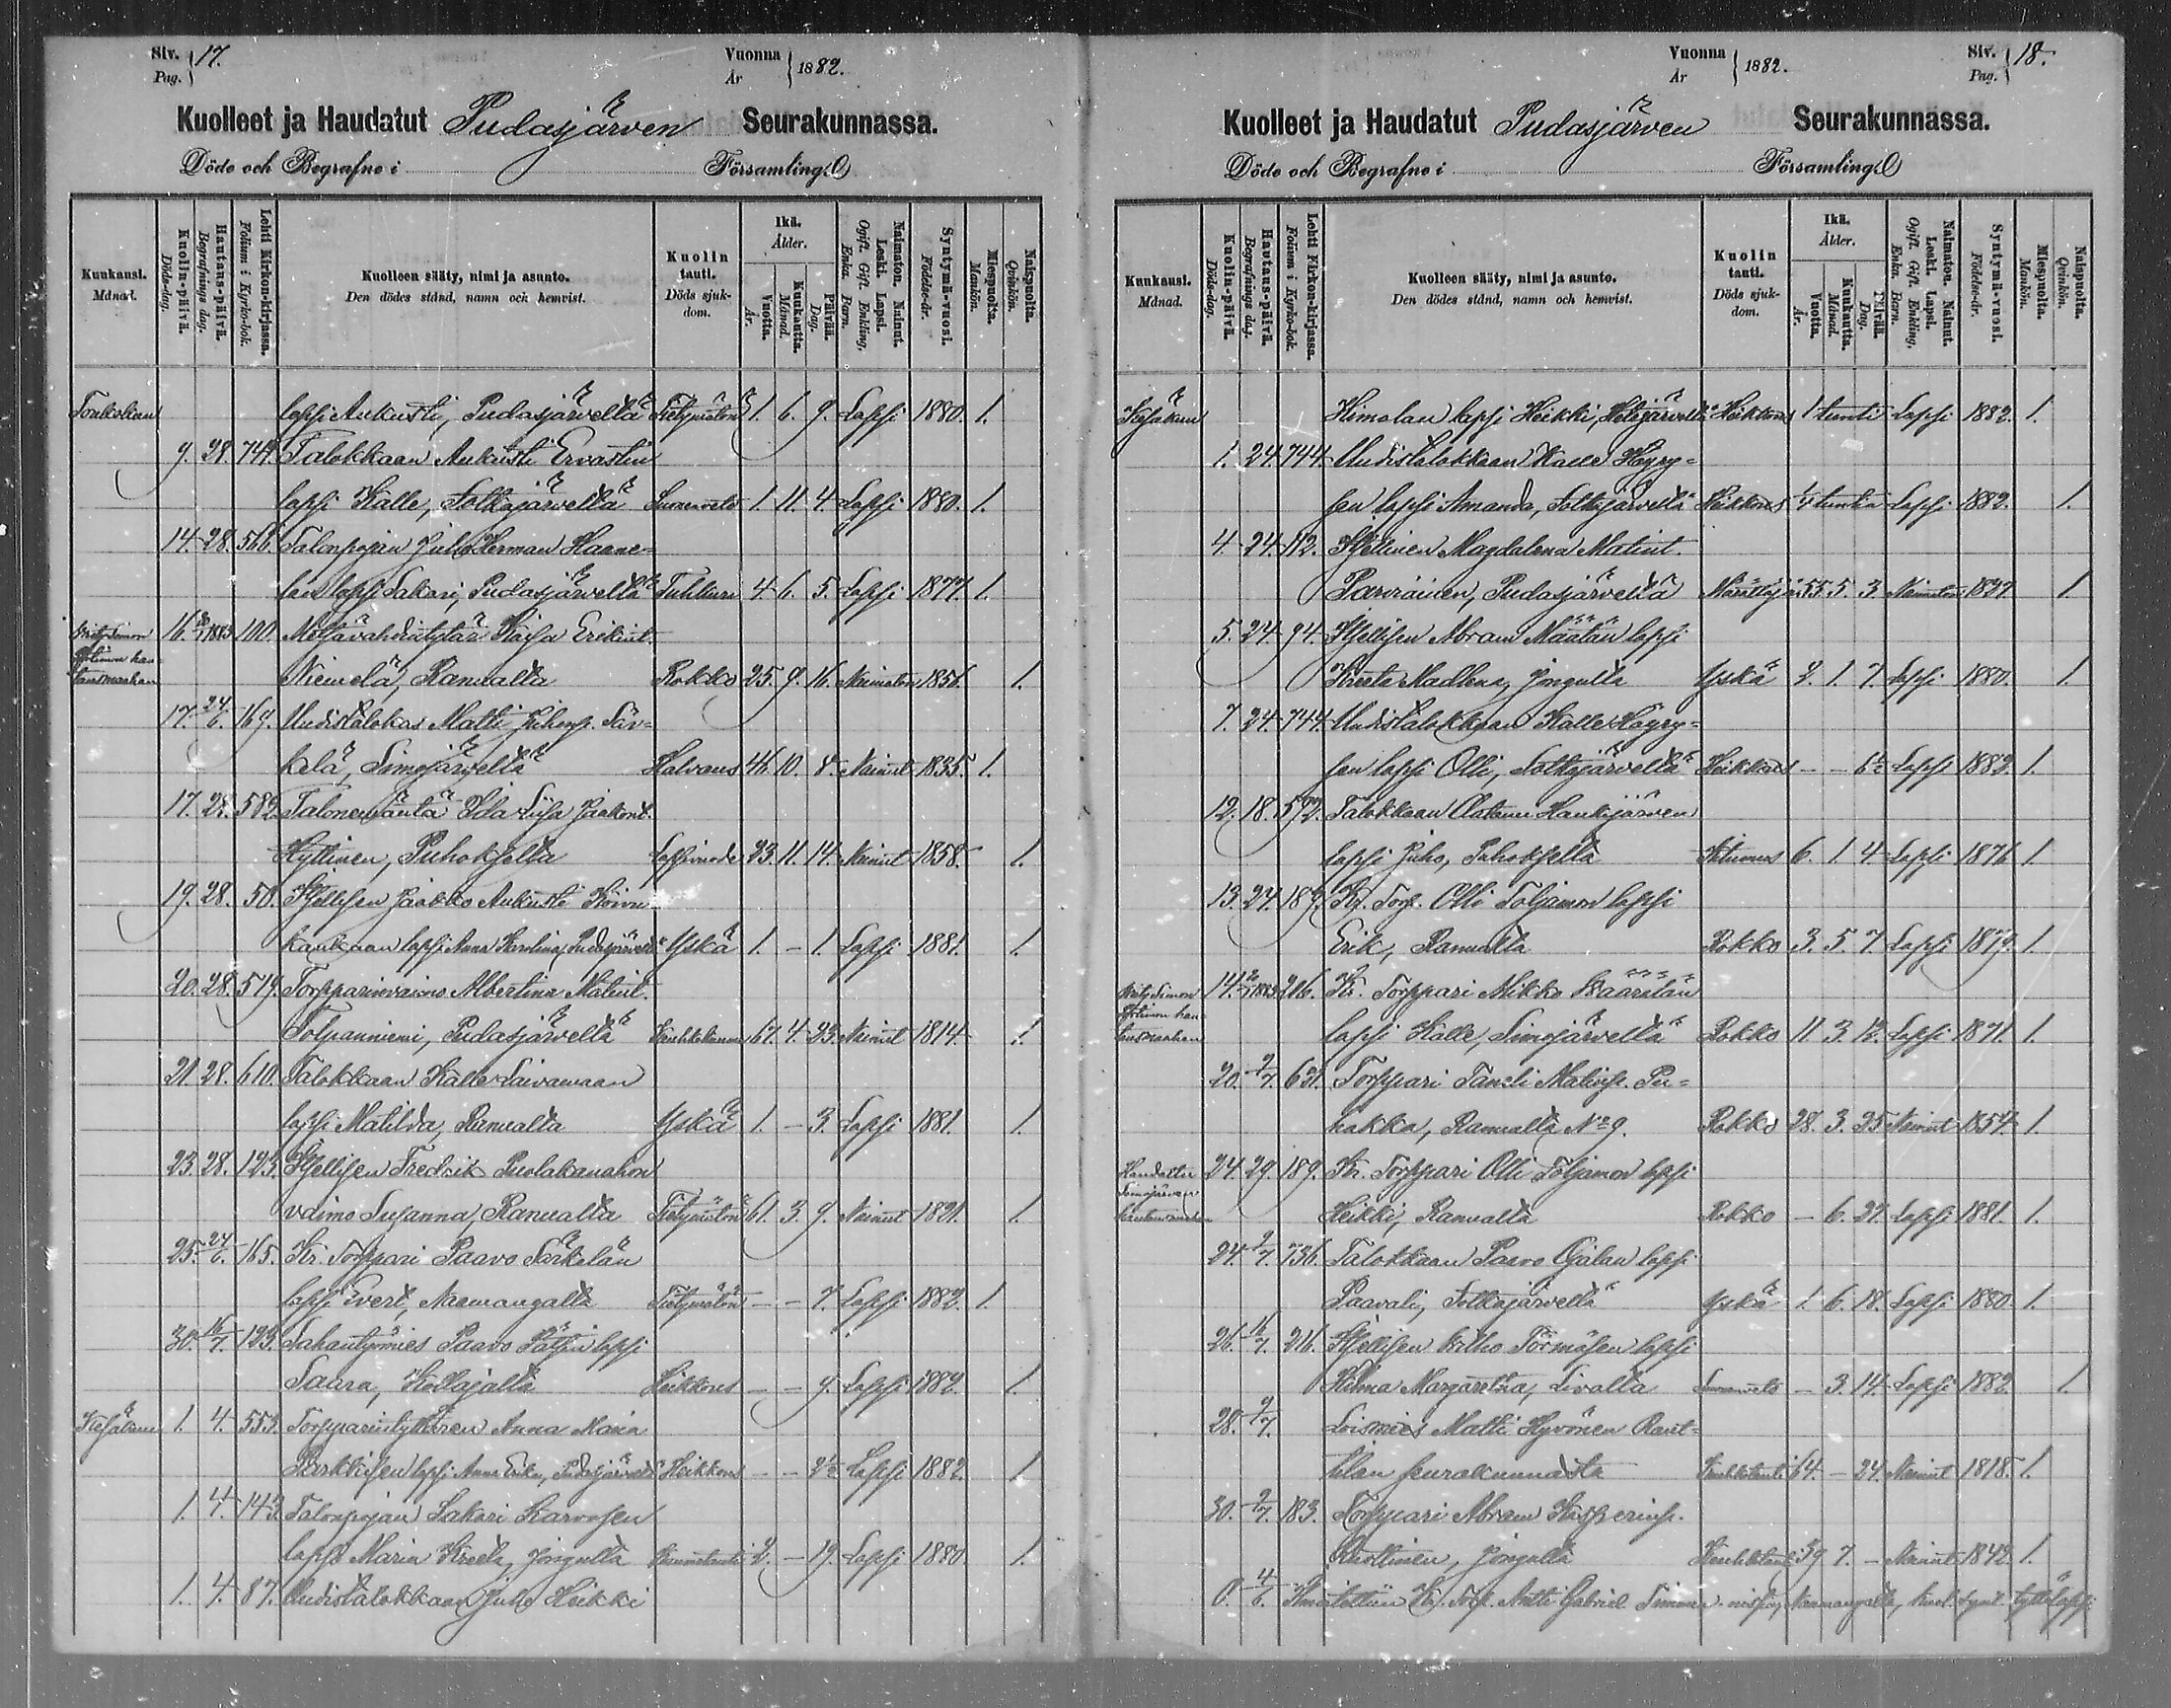 Siv. Pag. 17.
Vuonna År 1882.
Kuolleet ja Haudatut Pudasjärven Seurakunnassa.
Döde och Begrafne i Församling.
Kuukausi. Månad.
Kuolin-päivä. Döds-dag.
Hautaus-päivä. Begrafnings dag.
Lehti Kirkon-kirjassa. Folium i Kyrko-bok.
Kuolleen sääty, nimi ja asunto. Den dödes stånd, namn och hemvist.
Kuolin tauti. Döds sjukdom.
Ikä. Ålder.
Vuotta. År.
Kuukautta. Månad.
Päivää. Dag.
Naimaton. Nainut. Leski. Lapsi. Ogift. Gift. Enkling, Enka. Barn.
Syntymä-vuosi. Födelse-år.
Miespuolta. Mankön.
Naispuolta. Qvinkön.
Toukokuu lapsi Aukusti, Pudasjärveltä Tietymätön 1. 6. 9. Lapsi 1880. 1.
9. 28. 747. Talokkaan Aukusti Ervastin
lapsi Kalle, Sotkajärveltä 1. 11. 4 Lapsi 1880. 1.
14. 28. 566. Talonpojan Juho Herman Haane-
lan lapsi Sakari, Pudasjärveltä Tuhkuri 4. 6. 5. Lapsi 1877. 1.
16. 1883 100. Metsävahdintytär Kaisa Erikint.
Niemelä, Ranualta Rokko 25. 9. 16. Naimaton 1856. 1.
17. 24/6. 169. Uudistalokas Matti Juhonp. Sär-
kelä, Simojärveltä Halvaus 46. 10. 8. Nainut 1835. 1.
17. 28. 582. Talonemäntä Ida Liisa Jaakont.
Hyttinen, Puhokselta Lapsivuode 23. 11. 14. Nainut 1858. 1.
19. 28. 50. Itsellisen Jaakko Aukusti Koivu-
kankaan lapsi Anna Karolina, Pudasjärveltä Yskä 1. - 1. Lapsi 1881. 1.
20. 28. 579. Torpparinvaimo Albertina Matint.
Tolpanniemi, Pudasjärveltä 67. 4. 23. Nainut 1814. 1.
21. 28. 610. Talokkaan Kalle Taivamaan
lapsi Matilda, Ranualta Yskä 1. - 3. Lapsi 1881. 1.
23. 28. 125. Itsellisen Fredrik Puolakanahon
vaimo Susanna, Ranualta Tietymätön 61. 3. 9. Nainut 1821. 1.
25. 24/6. 165. Kr. Torppari Paavo Särkelän
lapsi Evert, Naamangalta Tietymätön - - 7. Lapsi 1882. 1.
30. 16/7. 123. Sahantyömies Paavo Pätsin lapsi
Saara, Kollajalta Heikkous - - 9. Lapsi 1882. 1.
Kesäkuu 1. 4. 553. Torpparintyttären Anna Maria
Parkkisen lapsi Anna Erika, Pudasjärveltä Heikkous - - 2½ Lapsi 1882. 1.
1. 4. 143. Talonpojan Sakari Karvosen
lapsi Maria Kreeta, Jongulta 2. - 19. Lapsi 1880. 1.
1. 4. 87. Uudistalokkaan Juho Heikki
Vuonna År 1882.
Siv. Pag. 18.
Kuolleet ja Haudatut Pudasjärven Seurakunnassa.
Döde och Begrafne i Församling.
Kuukausi. Månad.
Kuolin-päivä. Döds-dag.
Hautaus-päivä. Begrafnings dag.
Lehti Kirkon-kirjassa. Folium i Kyrko-bok.
Kuolleen sääty, nimi ja asunto. Den dödes stånd, namn och hemvist.
Kuolin tauti. Döds sjukdom.
Ikä. Ålder.
Vuotta. År.
Kuukautta. Månad.
Päivää. Dag.
Naimaton. Nainut. Leski. Lapsi. Ogift. Gift. Enkling, Enka. Barn.
Syntymä-vuosi. Födelse-år.
Miespuolta. Mankön.
Naispuolta. Qvinkön.
Kesäkuu Himolan lapsi Heikki, Hetejärveltä Heikkous 1 tunti Lapsi 1882. 1.
1. 24. 744. Uudistalokkaan Kalle Häyry-
sen lapsi Amanda, Sotkajärveltä Heikkous ¼ tuntia Lapsi 1882. 1.
4. 24. 112. Itsellinen Magdalena Matint.
Parviainen, Pudasjärveltä 55. 5. 3. Naimaton 1827. 1
5. 24. 94. Itsellisen Abram Määtän lapsi
Kreeta Madlena, Jongulta Yskä 2. 1. 7. Lapsi 1880. 1.
7. 24. 744. Uudistalokkaan Kalle Häyry-
sen lapsi Olli, Sotkajärveltä Heikkous - - 6½ Lapsi 1882. 1.
12. 18. 592. Talokkaan Aatami Haukijärven
lapsi Juho, Puhokselta 6. 1. 4. Lapsi 1876. 1.
13. 24. 189. Kr. Torp. Olli Toljamon lapsi
Erik, Ranualta Rokko 3. 5. 7. Lapsi 1879. 1.
14. 1883 216. Kr. Torppari Mikko Väärälän
lapsi Kalle, Simojärveltä Rokko 11. 3. 12. Lapsi 1871. 1.
20. 9/7. 631. Torppari Taneli Matinp. Pu-
hakka, Ranualta No 9. Rokko 28. 3. 25. Nainut 1854. 1.
Haudattu Simojärven hautausmaahan 24. 29. 189. Kr. Torppari Olli Toljamon lapsi
Heikki, Ranualta Rokko - 6. 27. Lapsi 1881. 1.
24. 2/7. 736. Talokkaan Paavo Ojalan lapsi
Paavali, Sotkajärveltä Yskä 1. 6. 18. Lapsi 1880. 1.
26. 16/7. 216. Itsellisen Vilho Törmäsen lapsi
Hilma Margaretha, Livalta - 3. 14. Lapsi 1882. 1.
28. 9/7. Loismies Matti Hyvönen Raut-
tilan seurakunnasta 64. - 24. Nainut 1818. 1.
30. 9/7. 183. Torppari Abram Kasperinp.
Kurttinen, Jongulta 39. 7. - Nainut 1842. 1.
0. 4/6. Ilmoitettiin Kr. Torp. Antti Gabriel Naamangalta, kuol. synt. tyttölapsi